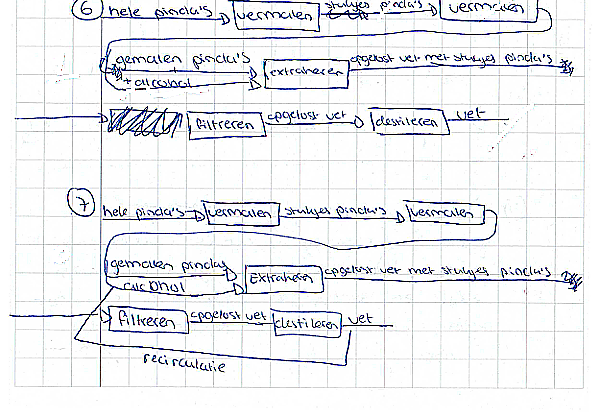 6 hele pinda's vermalen stukjes pinda's vermalen
gemalen pinda's
+ alcohol extraheren opgelost vet met stukjes pinda's
filtreren opgelost vet destileren vet
7 hele pinda's vermalen stukjes pinda's vermalen
gemalen pindas
alcohol Extraheren opgelost vet met stukjes pinda's
filtreren opgelost vet destileren vet
recirculatie